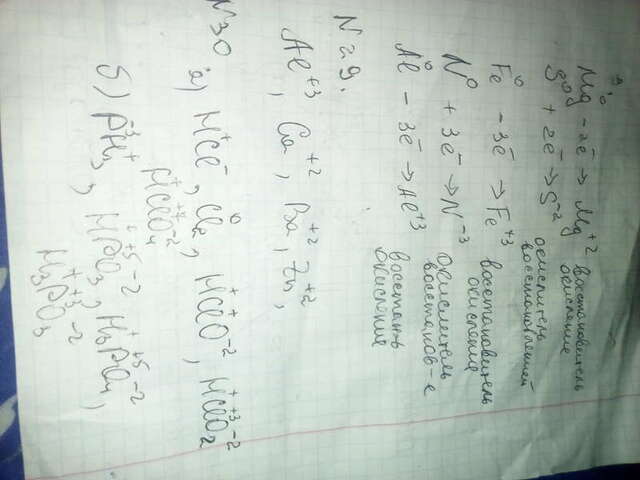 Mg⁰ - 2e⁻ → Mg⁺² восстановитель окисление
S⁰ + 2e⁻ → S⁻² окислитель восстановлений
Fe⁰ - 3e⁻ → Fe⁺³ восстановитель окисление
N⁰ + 3e⁻ → N⁻³ окислитель восстанов-е
Al⁰ - 3e⁻ → Al⁺³ восстан-ь окисление
N 29.
Al⁺³, Ca⁺², Ba⁺², Zn⁺²,
N30
а) H⁺Cl⁻, Cl₂⁰, H⁺Cl⁺O⁻², H⁺Cl⁺³O₂⁻²
H⁺Cl⁺⁷O₄⁻²
б) P⁻³H₃⁺, H⁺P⁺⁵O₃⁻², H₃⁺P⁺⁵O₄⁻²,
H₃⁺P⁺³O₃⁻²